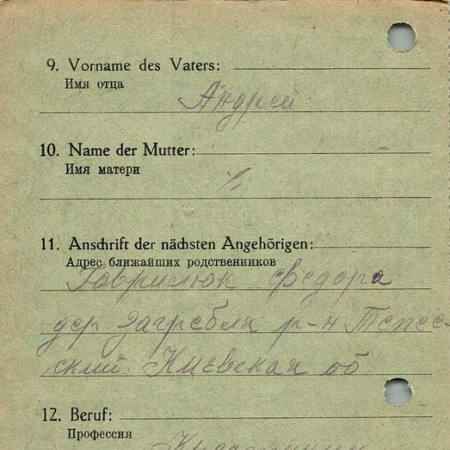 9. Vorname des Vaters:
Имя отца
Андрей
10. Name der Mutter:
Имя матери
11. Anschrift der nächsten Angehörigen:
Адрес ближайших родственников
Гаврилюк Федора
дер Загребля р-н
ский Киевская об
12. Beruf:
Профессия